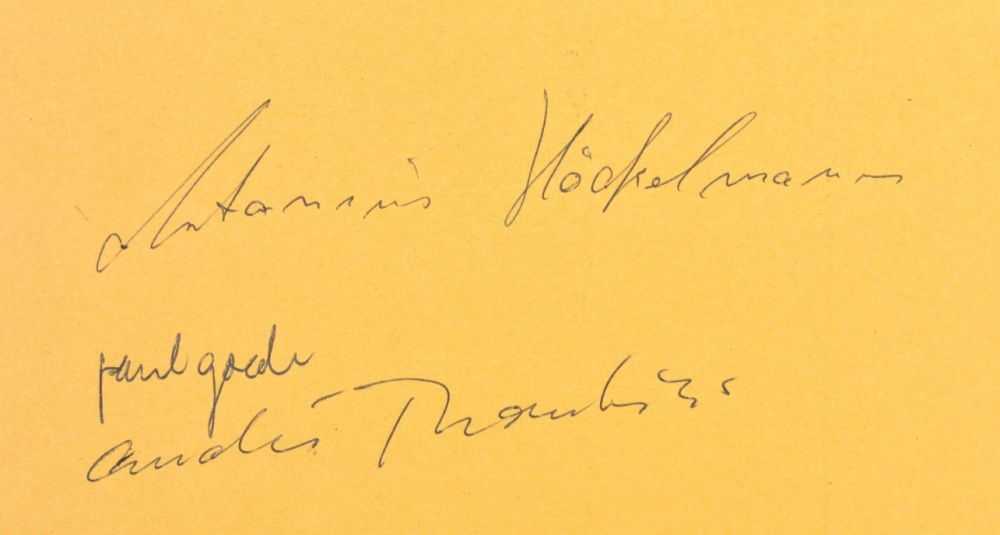 Antonius Höckelmann
paul goede
André Thomkins